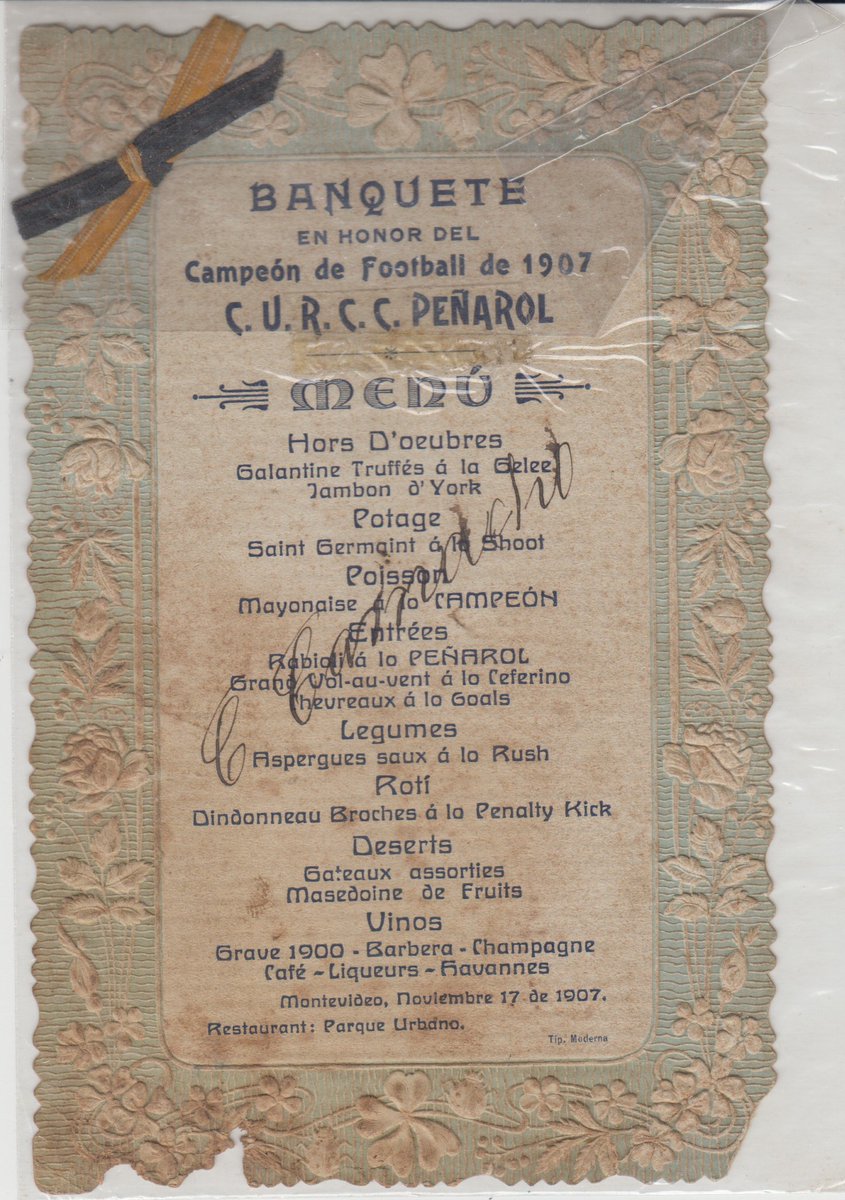 BANQUETE
EN HONOR DEL
Campeón de Football de 1907
C. U. R. C. C. PEÑAROL
MENÚ
Hors D'oeubres
Galantine Truffés á la Gelee
Jambon d'York
Potage
Saint Germaint á lo Shoot
Poisson
Mayonaise á lo CAMPEÓN
Entrées
Rabioli á lo PEÑAROL
Grand Vol-au-vent á lo Ceferino
Chevreaux á lo Goals
Legumes
Aspergues saux á lo Rush
Rotí
Dindonneau Broches á la Penalty Kick
Deserts
Gateaux assorties
Masedoine de Fruits
Vinos
Grave 1900 - Barbera - Champagne
Café - Liqueurs - Havannes
Montevideo, Noviembre 17 de 1907.
Restaurant: Parque Urbano.
Tip. Moderna